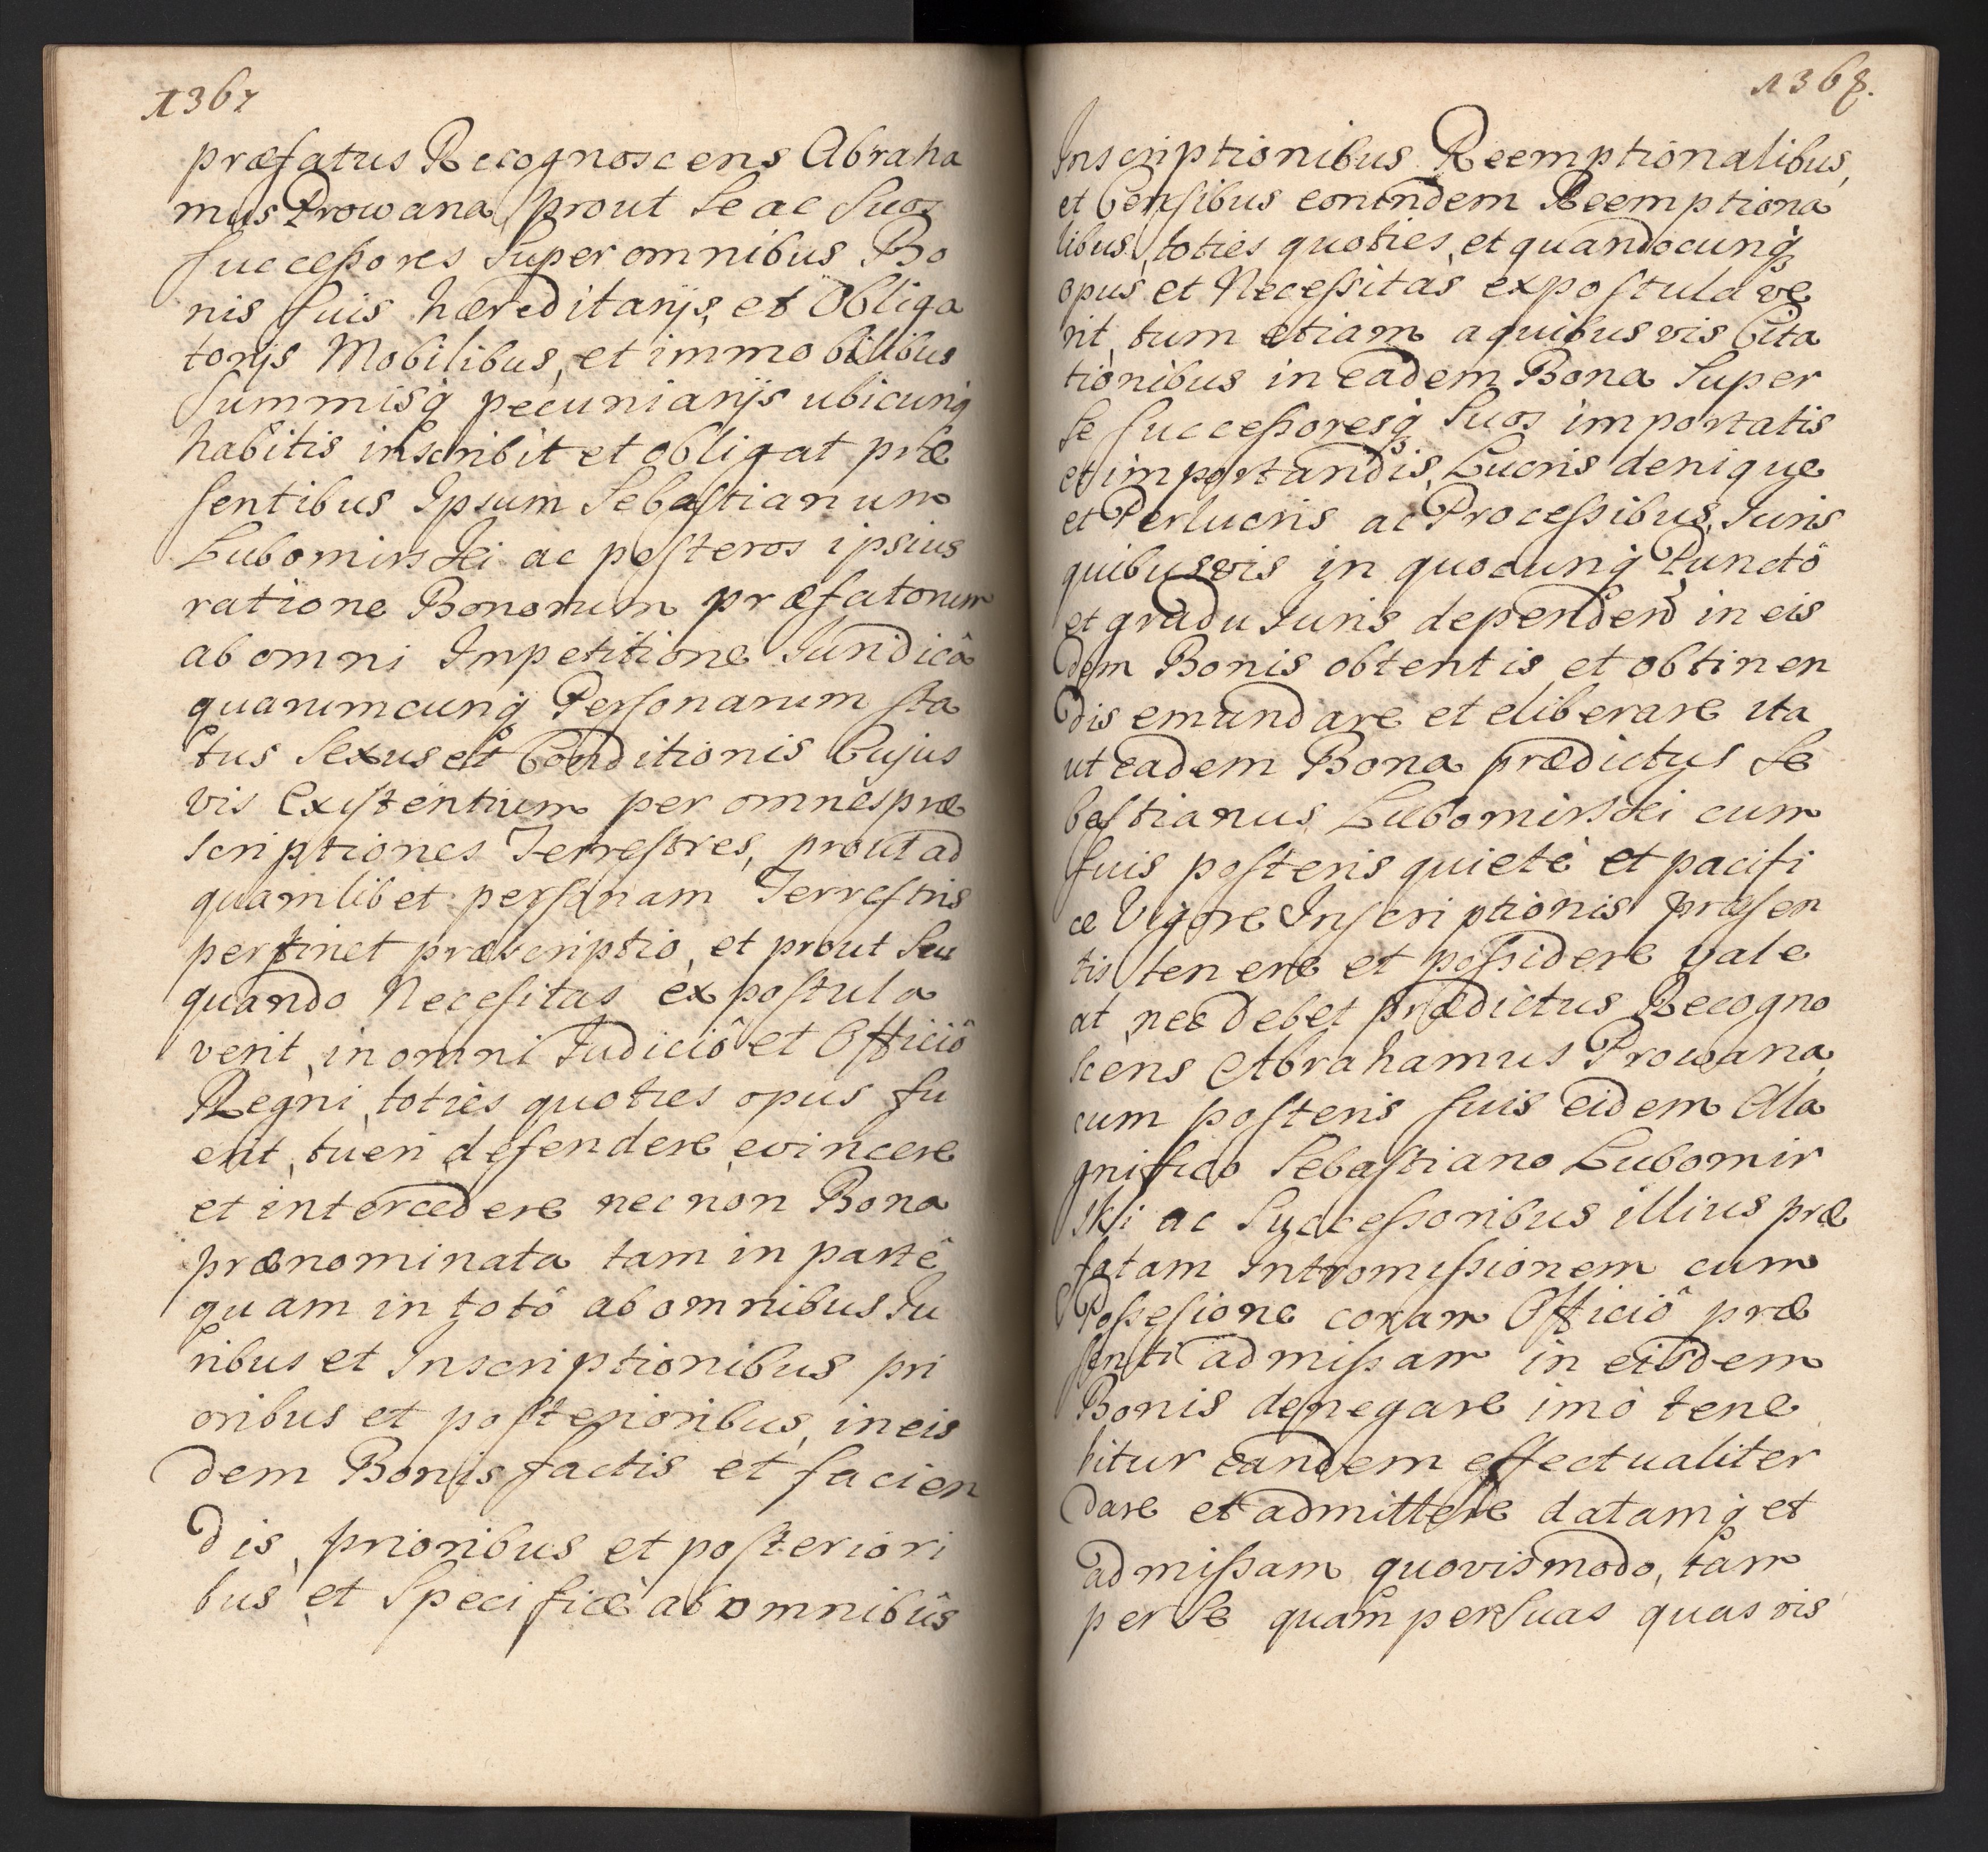 1367
præfatus Recognoscens Abraha
mus Prowana prout Se ac Suos
Successores Super omnibus Bo
nis suis hæreditarijs, et Obliga
torijs Mobilibus, et immobilibus
Summisq̀ pecuniarijs ubicunq̀
habitis inscribit et obligat præ
sentibus Ipsum Sebastianum
Lubomirski ac posteros ipsius
ratione Bonorum præfatorum
ab omni Impetitione Juridicâ
quarumcunq̀ Personarum sta
tus Sexus et Conditionis Cujus
vis Existentium per omnes præ
scriptiones Terrestres, prout ad
quamlibet personam Terrestris
pertinet præscriptio, et prout Seu
quando Necessitas expostula
verit, in omni Judiciô et Officiô
Regni, toties quoties opus fu
erit, tueri defendere, evincere
et intercedere nec non Bona
prænominata tam in partê
quam in totô ab omnibus Ju
ribus et Inscriptionibus pri
oribus et posterioribus, in eis
dem Bonis factis et facien
dis, prioribus et posteriori
bus, et Specificè ab omnibus
1368.
Inscriptionibus Reemptionalibus,
et Censibus eorundem Reemptiona
libus, toties quoties, et quandocunq̀
opus et Necessitas expostulave
rit, tum etiam a quibusvis Cita
tionibus in eadem Bona Super
Se Successoresq̀ Suos importatis
et importandis, Lucris denique
et Perlucris ac Processibus Juris
quibusvis in quocunq̀ Punctô
et gradu Juris dependen in eis
dem Bonis obtentis et obtinen
dis emundare et eliberare ita
ut eadem Bona prædictus Se
bastianus Lubomirski cum
suis posteris quietè et pacifi
ce Vigore Inscriptionis præsen
tis tenere et possidere vale
at nec debet prædictus Recogno
scens Abrahamus Prowana,
cum posteris suis eidem Ma
gnifico Sebastiano Lubomir
ski ac Successoribus illius præ
fatam Intromissionem cum
Possessione coram Officiô præ
senti admissam in eisdem
Bonis denegare imò tene
bitur eandem effectualiter
dare et admittere datamq̀ et
admissam quovismodo, tam
per Se quam per Suas quasvis